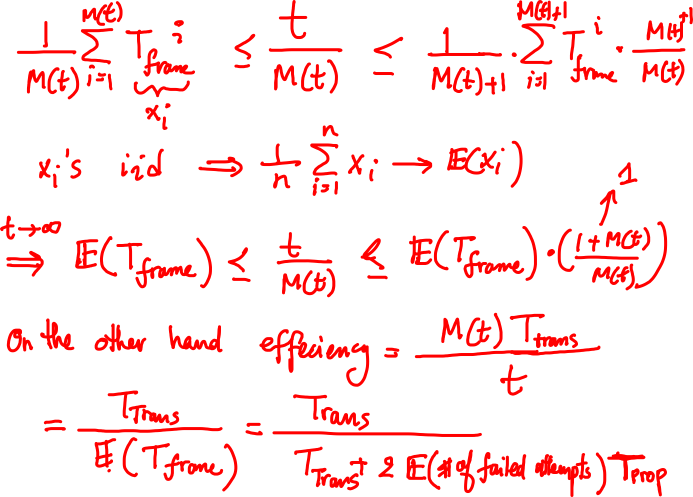 1/M(t) ∑_{i=1}^{M(t)} T_{frame}^i ≤ t/M(t) ≤ 1/(M(t)+1) · ∑_{i=1}^{M(t)+1} T_{frame}^i · (M(t)+1)/M(t)
x_i
x_i's iid ⇒ 1/n ∑_{i=1}^{n} x_i → 𝔼(x_i)
1
t→∞ ⇒ 𝔼(T_{frame}) ≤ t/M(t) ≤ 𝔼(T_{frame}) · ((1+M(t))/M(t))
On the other hand effeciency = M(t) T_{trans} / t
= T_{Trans} / 𝔼(T_{frame}) = T_{rans} / (T_{Trans} + 2 𝔼(# of failed attempts) T_{prop}